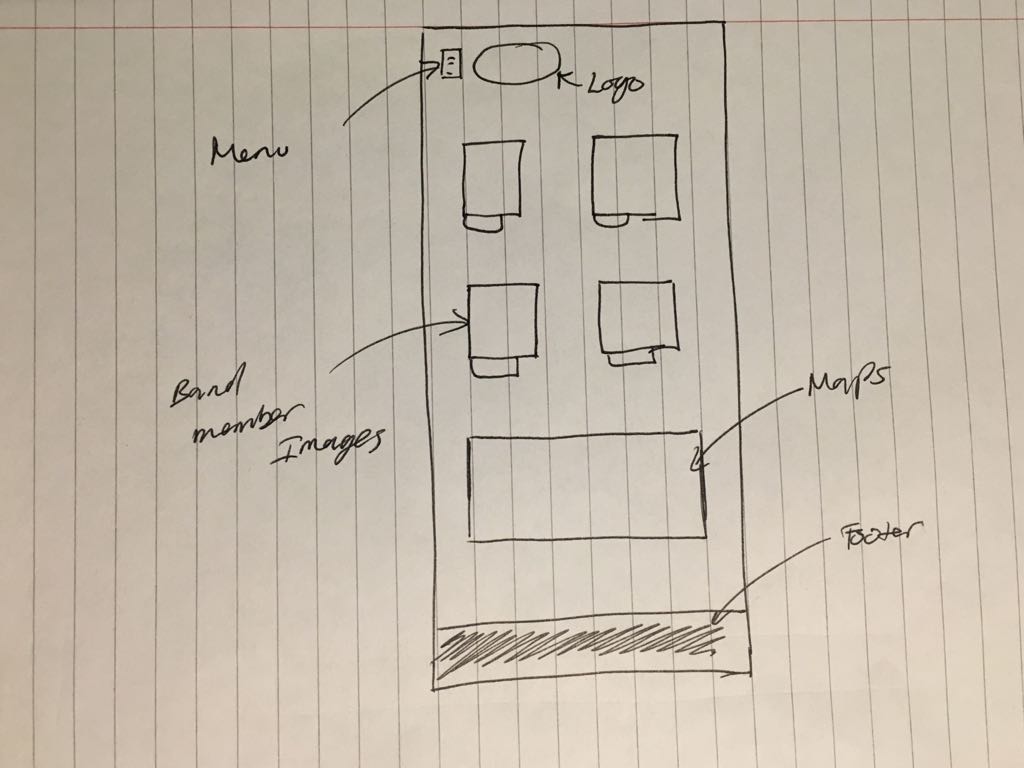 Logo
Menu
Band
member
Images
Maps
Footer